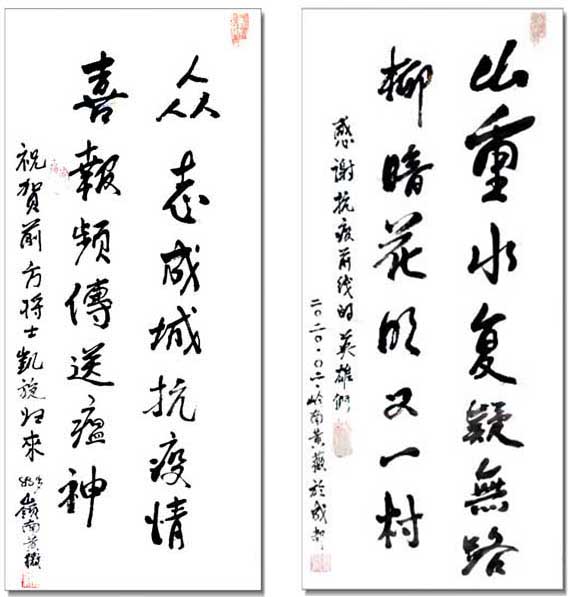 山重水复疑無路
柳暗花明又一村
感谢抗疫前线的英雄們
二〇二〇·〇二·岭南黄於成都
众志成城抗疫情
喜報頻傳送瘟神
祝贺前方将士凱旋归來
嶺南黄